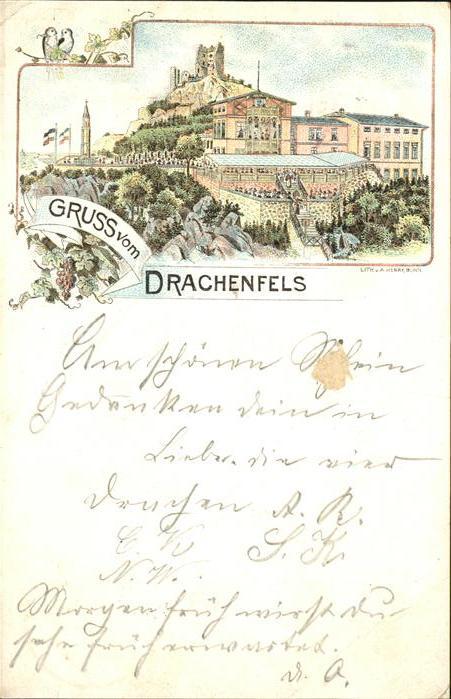 GRUSS vom
DRACHENFELS
LITH. v. A. HENRY, BONN.
Am schönen Rhein
Gedenken dein in
Liebe. die vier
Drachen A. R.
C. K. S. K.
N. W.
Morgen früh wirst du
sehr früh erwartet.
d. O.